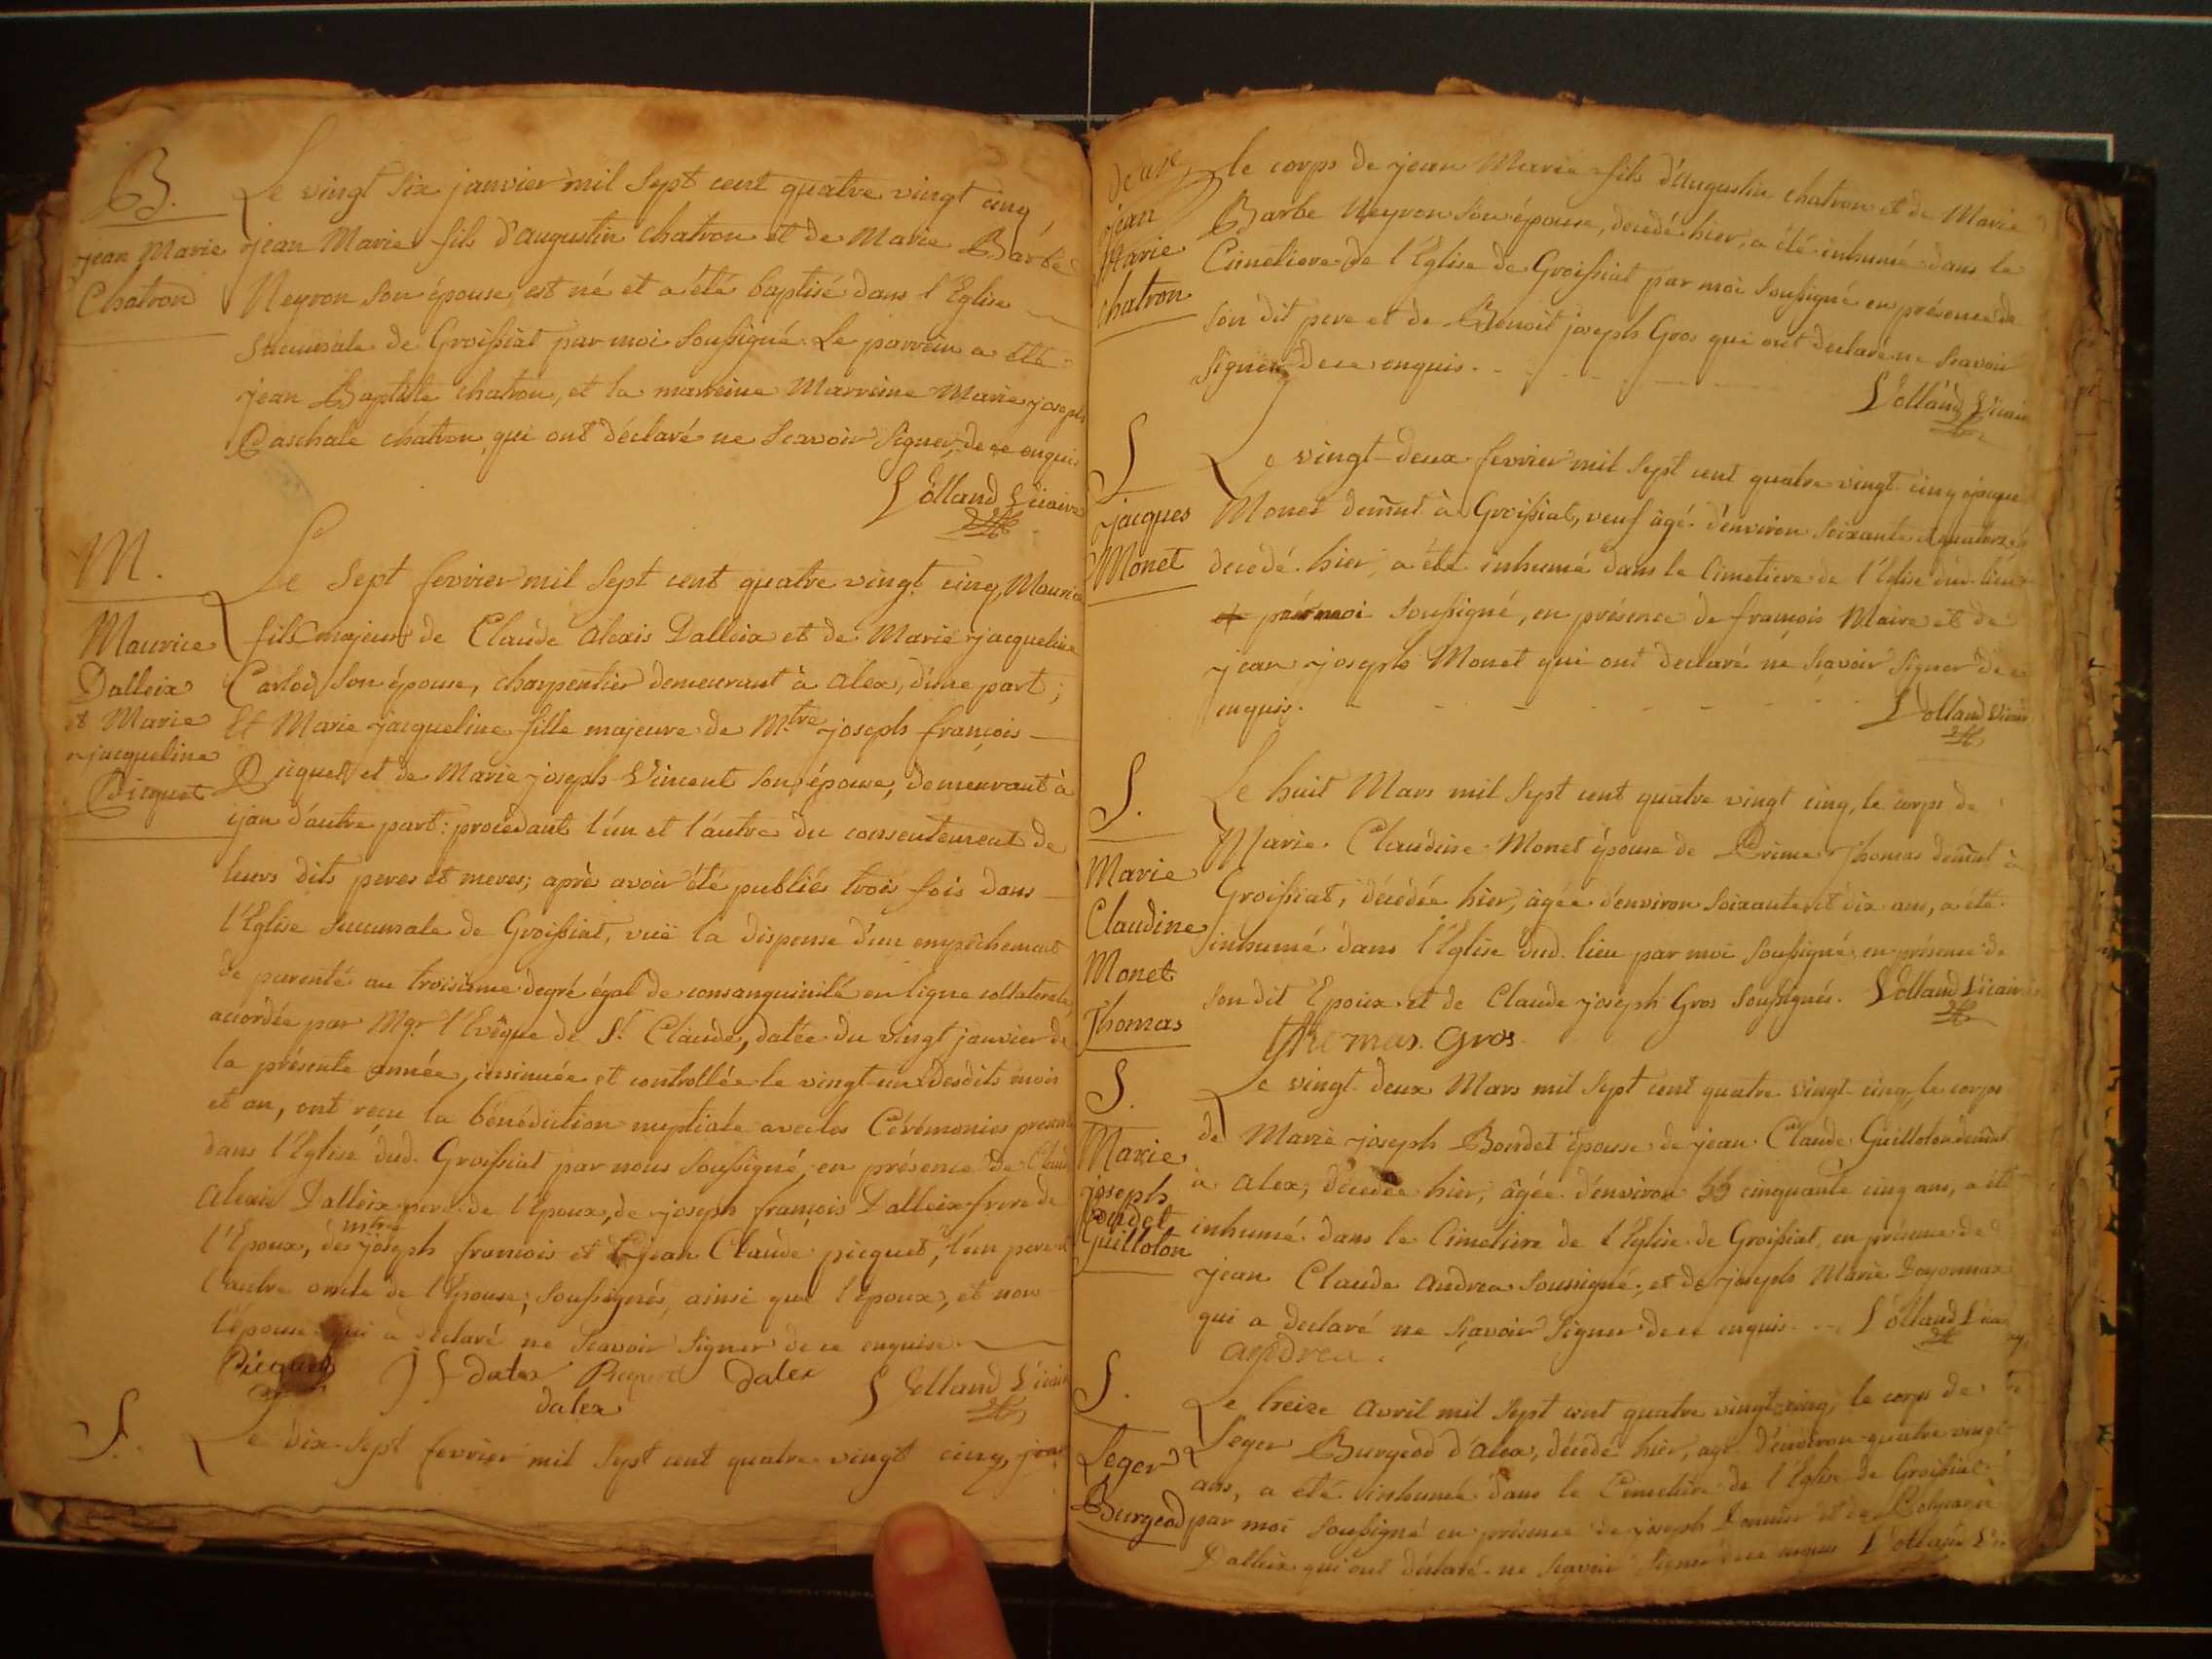 B.
jean Marie
Chatron
Le vingt six janvier mil sept cent quatre vingt cinq
jean Marie fils d'augustin chatron et de Marie Barbe
Neyron son épouse, est né et a été baptisé dans l'Eglise
succursale de Groissiat par moi soussigné. Le parrein a été
jean Baptiste chatron, et la marreine Marreine Marie joseph
Paschale chatron, qui ont déclaré ne scavoir signer, de ce enquis
Lolland Vicaire
M.
Maurice
Dalleix
et Marie
jacqueline
Picquet
Le sept fevrier mil sept cent quatre vingt cinq, Maurice
fils majeur de Claude alexis Dalleix et de Marie jacqueline
Carlod son épouse, charpentier demeurant à alex, d'une part;
Et Marie jacqueline fille majeure de M.tre joseph françois
Picquet et de Marie joseph Vincent son épouse, demeurant à
ijan d'autre part: procédant l'un et l'autre du consentement de
leurs dits peres et meres; après avoir été publiés trois fois dans
l'Eglise succursale de Groissiat, vuë la dispense d'un empêchement
de parenté au troisième degré égal de consanguinité en ligne collaterale,
accordée par Mgr. l'Evêque de St. Claude, datée du vingt janvier de
la présente année, insinuée et controllée le vingt un desdits mois
et an, ont reçu la bénédiction nuptiale avec les Cérémonies
dans l'Eglise dud. Groissiat par nous soussigné, en présence de Claude
alexis Dalleix pere de l'époux, de joseph françois Dalleix frere de
l'Epoux, de mtre joseph francois et jean Claude picquet, l'un pere
l'autre oncle de l'épouse; soussignés, ainsi que l'époux, et non
l'épouse qui a déclaré ne scavoir signer de ce enquise.
Picquet J F dalex Picquet dalex Lolland Vicaire
dalex
S.
Le dix-sept fevrier mil sept cent quatre-vingt cinq,
jean
Marie
chatron
le corps de jean Marie fils d'augustin chatron et de Marie
Barbe Neyron son épouse, decedé hier, a été inhumé dans le
Cimetiere de l'Eglise de Groissiat par moi soussigné en présence de
son dit pere et de Benoit joseph Gros qui ont declaré ne scavoir
signer de ce enquis.
Lolland Vicaire
S
jacques
Monet
Le vingt-deux fevrier mil sept cent quatre vingt cinq jacques
Monet demt à Groissiat, veuf âgé d'environ soixante et quatorze
decedé hier, a été inhumé dans le Cimetiere de l'Eglise dud. lieu
par moi soussigné, en présence de françois Maire et de
jean joseph Monet qui ont declaré ne scavoir signer de ce
enquis.
Lolland Vicaire
S.
Marie
Claudine
Monet
Thomas
Le huit Mars mil sept cent quatre vingt cinq, le corps de
Marie Claudine Monet épouse de Prime Thomas demt à
Groissiat, décédée hier, âgée d'environ soixante et dix ans, a été
inhumé dans l'Eglise dud. lieu par moi soussigné, en présence de
son dit Epoux et de Claude joseph Gros soussignés. Lolland Vicaire
thomas. Gros.
S.
Marie
joseph
Bondet
Guilloton
Le vingt-deux Mars mil sept cent quatre vingt-cinq, le corps
de Marie joseph Bondet épouse de jean Claude Guilloton demt
à alex, décédée hier, âgée d'environ 55 cinquante cinq ans, a été
inhumé dans le Cimetiere de l'Eglise de Groissiat, en présence de
jean Claude andrea soussigné, et de joseph Marie Doyonnax
qui a declaré ne scavoir signer de ce enquis. Lolland Vicaire
andrea.
S.
Leger
Burgeod
Le treize avril mil sept cent quatre vingt cinq, le corps de
Leger Burgeod d'alex, décédé hier, agé d'environ quatre vingt
ans, a été inhumé dans le Cimetiere de l'Eglise de Groissiat
par moi soussigné en présence de joseph et de
Dalleix qui ont déclaré ne scavoir signer de ce enquis Lolland